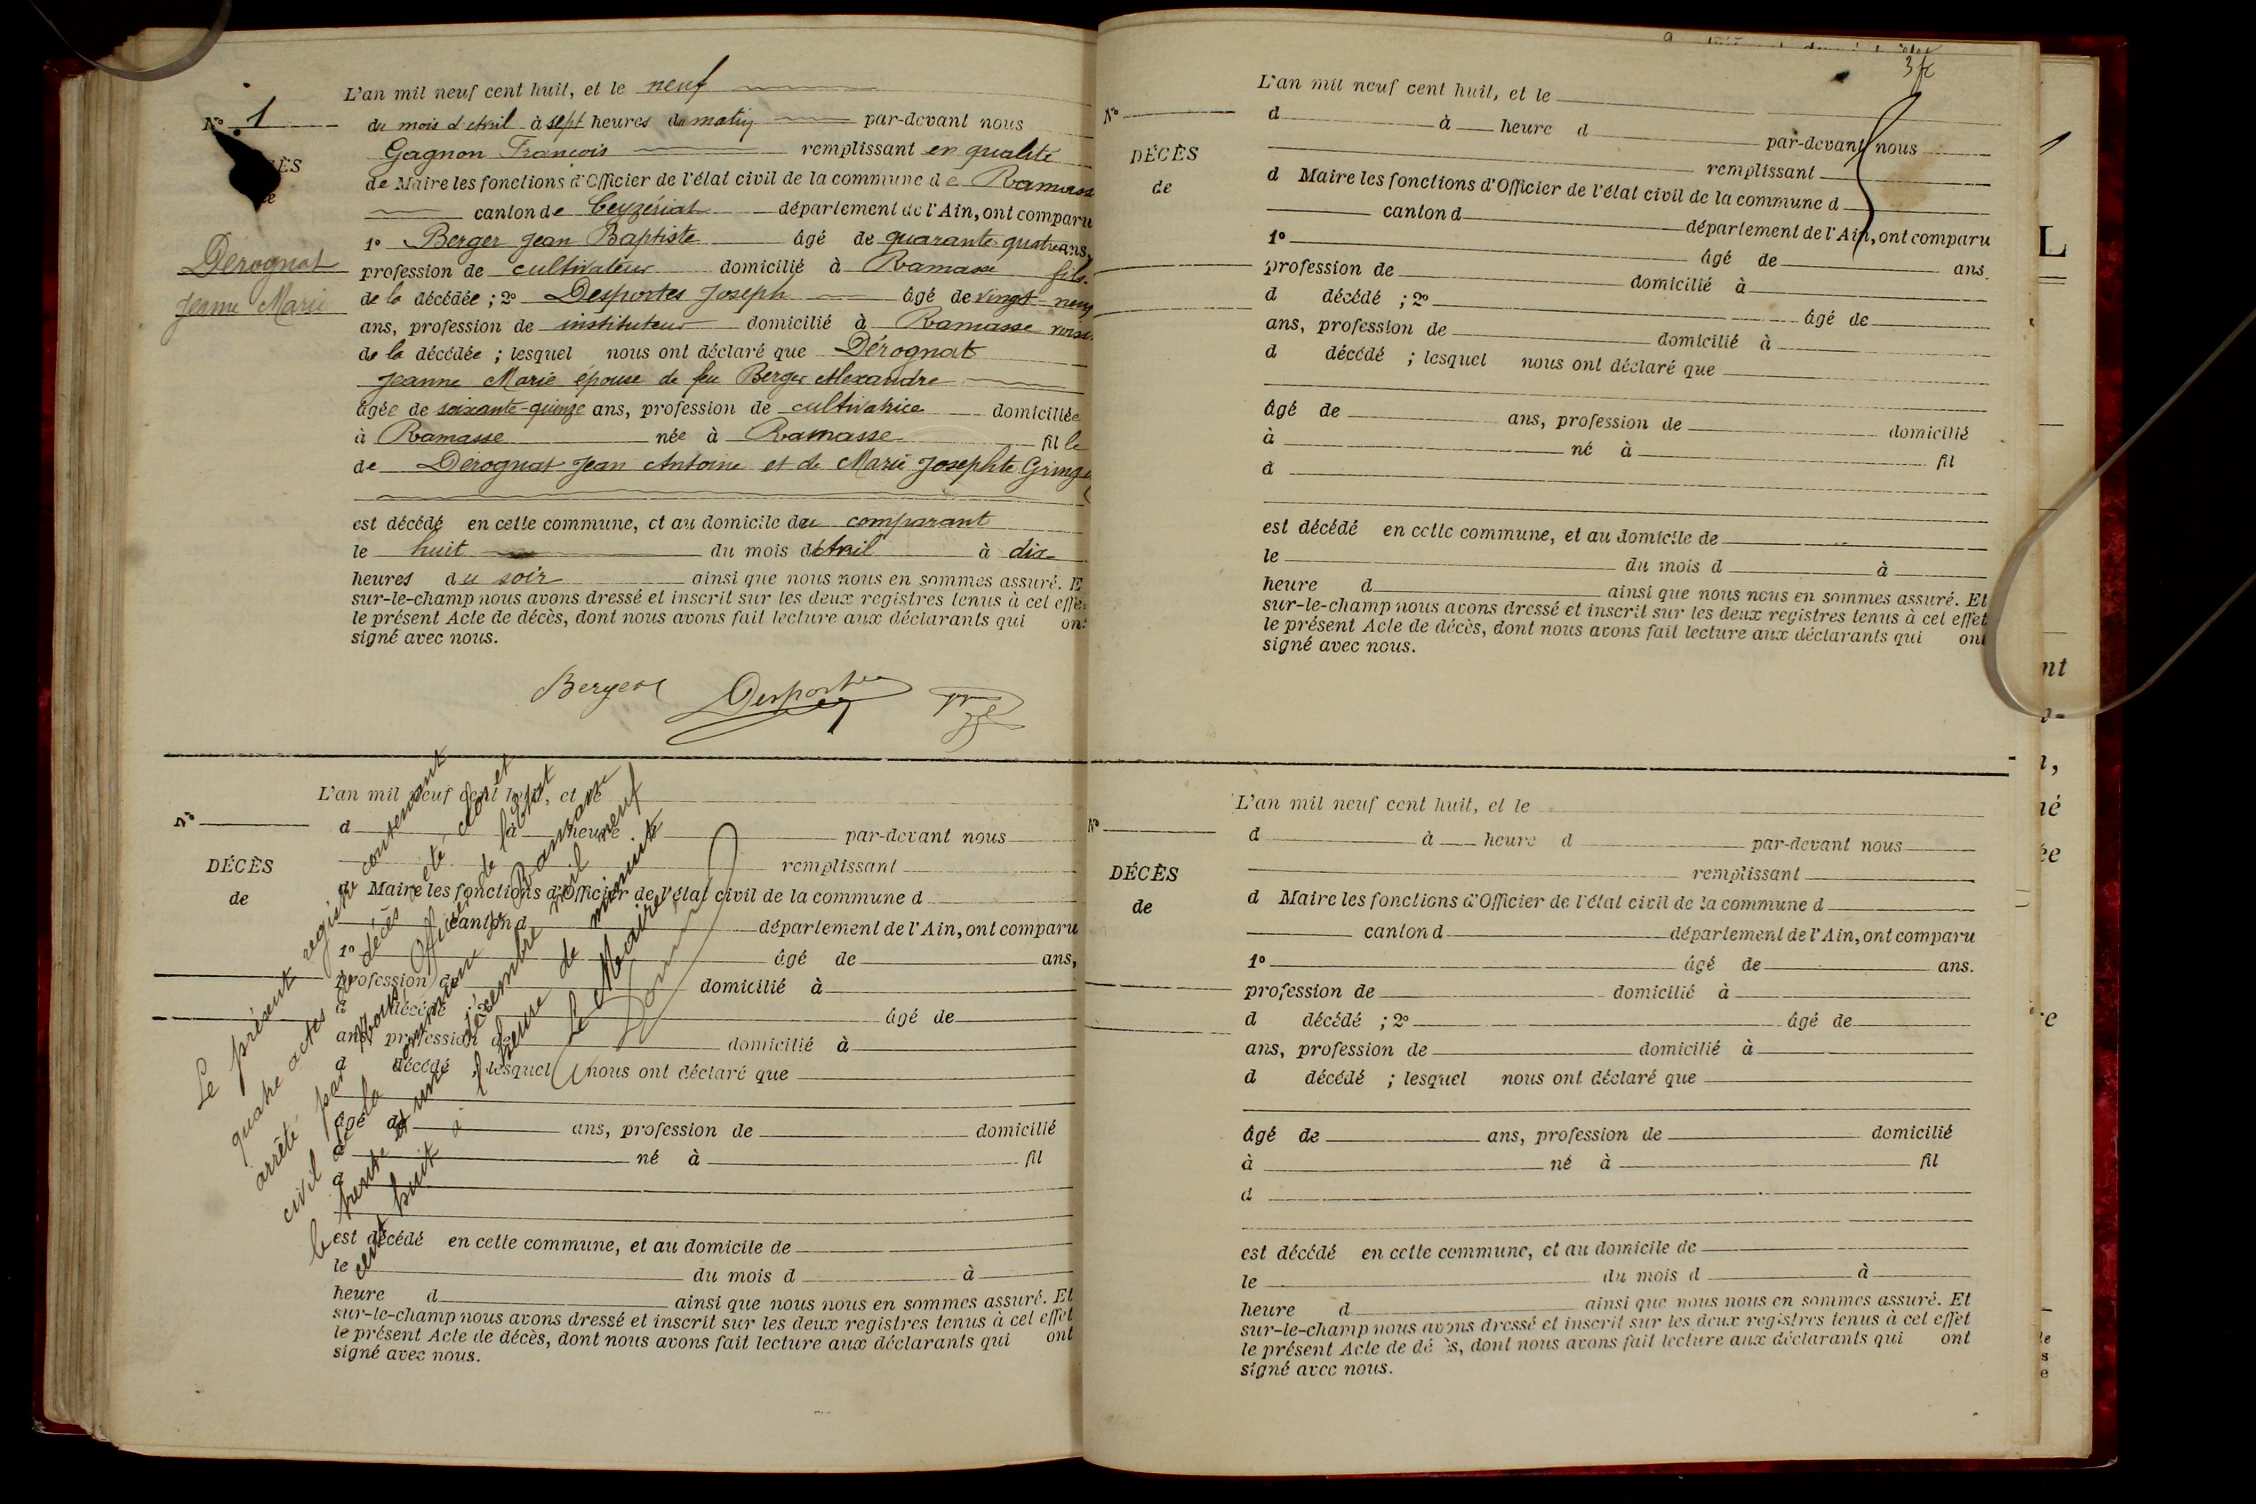 L'an mil neuf cent huit, et le neuf
No 1
du mois d'Avril à sept heures du matin par-devant nous
Gagnon François remplissant en qualité
DÉCÈS
de Maire les fonctions d'Officier de l'état civil de la commune de Ramasse
de
canton de Ceyzériat département de l'Ain, ont comparu
1o Berger Jean Baptiste âgé de quarante-quatre ans,
Dérognat
Jeanne Marie
profession de cultivateur domicilié à Ramasse fils
de la décédée ; 2o Desportes Joseph âgé de vingt-neuf
ans, profession de instituteur domicilié à Ramasse voisin
de la décédée ; lesquel nous ont déclaré que Dérognat
Jeanne Marie épouse de feu Berger Alexandre
âgée de soixante-quinze ans, profession de cultivatrice domiciliée
à Ramasse née à Ramasse fille
de Dérognat Jean Antoine et de Marie Josephte
est décédé en cette commune, et au domicile du comparant
le huit du mois d'Avril à dix
heures du soir ainsi que nous nous en sommes assuré. E
sur-le-champ nous avons dressé et inscrit sur les deux registres tenus à cet effe
le présent Acte de décès, dont nous avons fait lecture aux déclarants qui ont
signé avec nous.
Berger Desportes
L'an mil neuf cent huit, et le
No
d à heure d par-devant nous
remplissant
DÉCÈS
de
d Maire les fonctions d'Officier de l'état civil de la commune d
canton d département de l'Ain, ont comparu
1o âgé de ans,
profession de domicilié à
d décédé ; 2o âgé de
ans, profession de domicilié à
d décédé ; lesquel nous ont déclaré que
âgé de ans, profession de domicilié
à né à fil
d
est décédé en cette commune, et au domicile de
le du mois d à
heure d ainsi que nous nous en sommes assuré. Et
sur-le-champ nous avons dressé et inscrit sur les deux registres tenus à cet effet
le présent Acte de décès, dont nous avons fait lecture aux déclarants qui ont
signé avec nous.
Le présent registre contenant
quatre actes de décès a été clos et
arrêté par nous, Officier de l'état
civil de la commune de Ramasse
le trente et un décembre mil neuf
cent huit à l'heure de minuit
Le Maire
3 fc
L'an mil neuf cent huit, et le
No
d à heure d par-devant nous
remplissant
DÉCÈS
de
d Maire les fonctions d'Officier de l'état civil de la commune d
canton d département de l'Ain, ont comparu
1o âgé de ans.
profession de domicilié à
d décédé ; 2o âgé de
ans, profession de domicilié à
d décédé ; lesquel nous ont déclaré que
âgé de ans, profession de domicilié
à né à fil
d
est décédé en cette commune, et au domicile de
le du mois d à
heure d ainsi que nous nous en sommes assuré. Et
sur-le-champ nous avons dressé et inscrit sur les deux registres tenus à cet effet
le présent Acte de décès, dont nous avons fait lecture aux déclarants qui ont
signé avec nous.
L'an mil neuf cent huit, et le
No
d à heure d par-devant nous
remplissant
DÉCÈS
de
d Maire les fonctions d'Officier de l'état civil de la commune d
canton d département de l'Ain, ont comparu
1o âgé de ans.
profession de domicilié à
d décédé ; 2o âgé de
ans, profession de domicilié à
d décédé ; lesquel nous ont déclaré que
âgé de ans, profession de domicilié
à né à fil
d
est décédé en cette commune, et au domicile de
le du mois d à
heure d ainsi que nous nous en sommes assuré. Et
sur-le-champ nous avons dressé et inscrit sur les deux registres tenus à cet effet
le présent Acte de décès, dont nous avons fait lecture aux déclarants qui ont
signé avec nous.